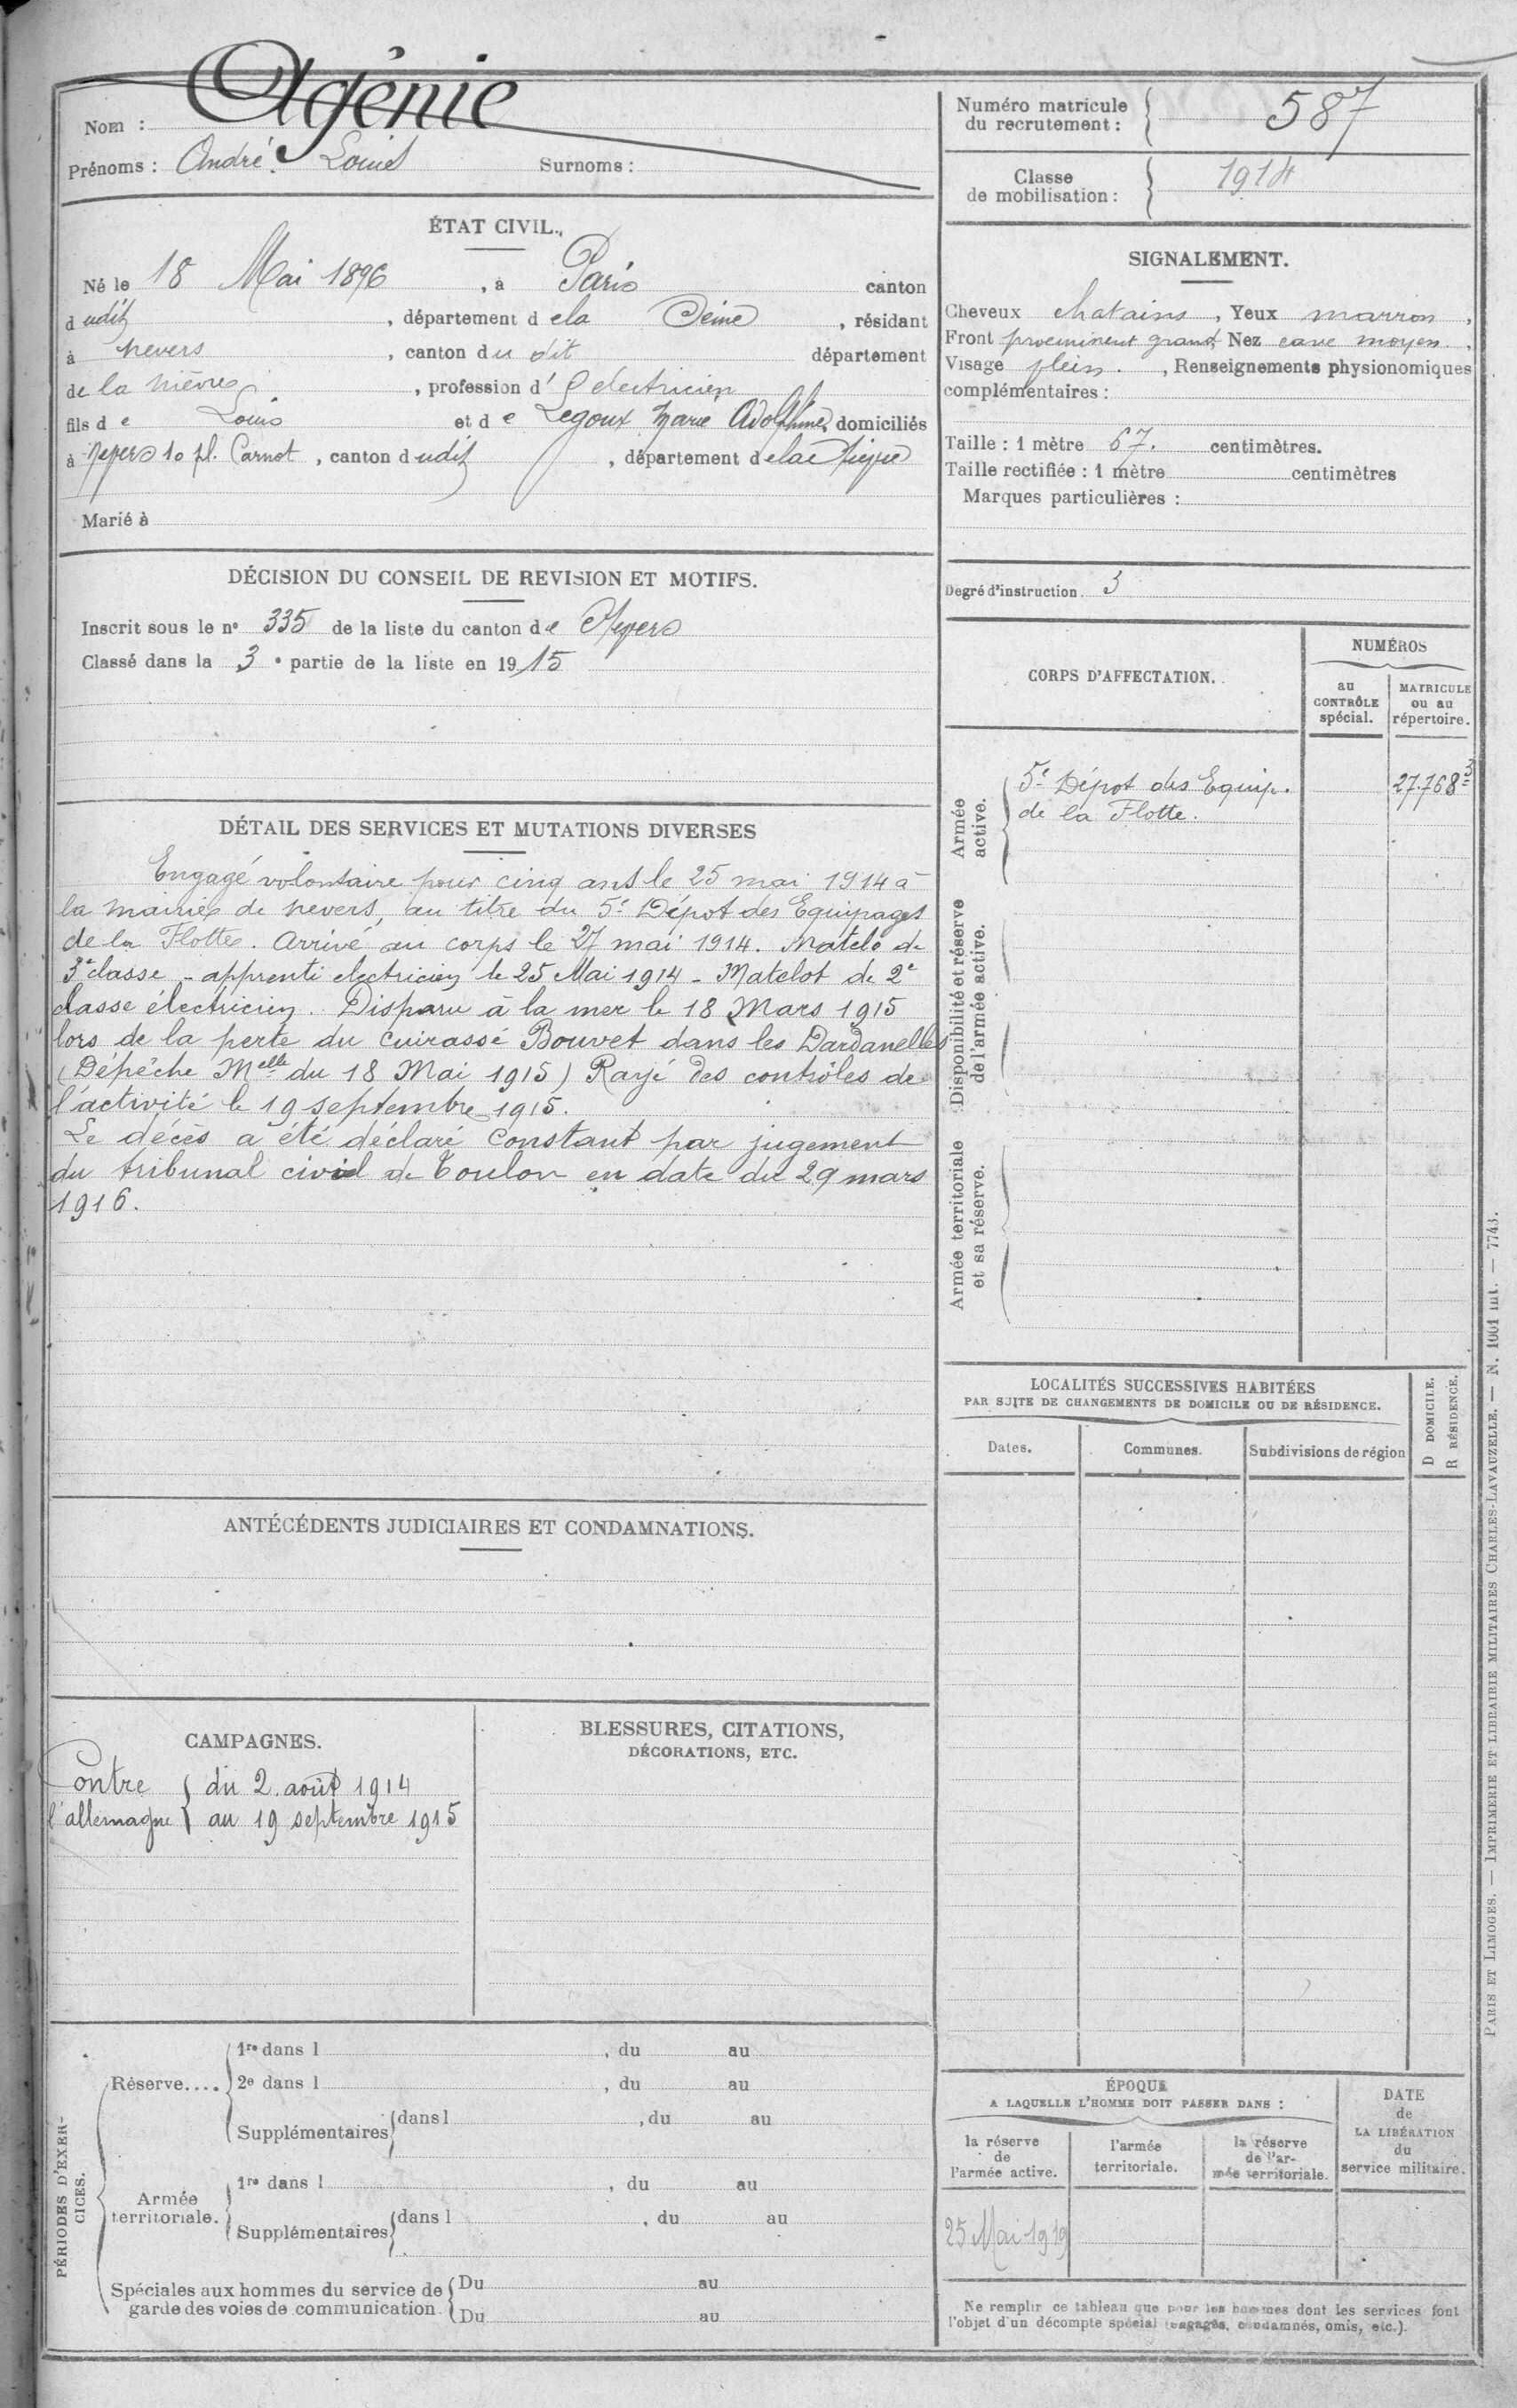 Nom : Agénie
Prénoms : André. Louis Surnoms :
Numéro matricule du recrutement : 587
Classe de mobilisation : 1914
ÉTAT CIVIL.
Né le 18 Mai 1896, à Paris canton
d udit, département d ela Seine, résidant
à Nevers, canton du dit département
de la Nièvre, profession d' électricien
fils de Louis et de Legoux Marie Adolphine, domiciliés
à Nevers 10 pl. Carnot, canton dudit, département dela Nièvre
Marié à
SIGNALEMENT.
Cheveux chatains, Yeux marron,
Front proeminent grand, Nez cave moyen.,
Visage plein., Renseignements physionomiques
complémentaires :
Taille : 1 mètre 67. centimètres.
Taille rectifiée : 1 mètre centimètres
Marques particulières :
Degré d'instruction. 3
DÉCISION DU CONSEIL DE REVISION ET MOTIFS.
Inscrit sous le n° 335 de la liste du canton de Nevers
Classé dans la 3e partie de la liste en 1915
DÉTAIL DES SERVICES ET MUTATIONS DIVERSES
Engagé volontaire pour cinq ans le 25 mai 1914 à
la mairie de Nevers, au titre du 5e Dépot des Equipages
de la Flotte. Arrivé au corps le 27 mai 1914. Matelo de
3e classe - apprenti electricien le 25 Mai 1914 - Matelot de 2e
classe électricien. Disparu à la mer le 18 Mars 1915
lors de la perte du cuirassé Bouvet dans les Dardanelles
(Dépêche Melle du 18 Mai 1915) Rayé des contrôles de
l'activité le 19 septembre 1915.
Le décès a été déclaré constant par jugement
du tribunal civil de Toulon en date du 29 mars
1916.
CORPS D'AFFECTATION.
NUMÉROS
au CONTRÔLE spécial.
MATRICULE ou au répertoire.
Armée active.
5e Dépot des Equip. 27.768=3
de la Flotte.
Disponibilité et réserve de l'armée active.
Armée territoriale et sa réserve.
LOCALITÉS SUCCESSIVES HABITÉES
PAR SUITE DE CHANGEMENTS DE DOMICILE OU DE RÉSIDENCE.
Dates. Communes. Subdivisions de région
D DOMICILE.
R RÉSIDENCE.
ANTÉCÉDENTS JUDICIAIRES ET CONDAMNATIONS.
CAMPAGNES.
Contre du 2. août 1914
l'allemagne au 19 septembre 1915
BLESSURES, CITATIONS,
DÉCORATIONS, ETC.
PÉRIODES D'EXERCICES.
Réserve....
1re dans l , du au
2e dans l , du au
Supplémentaires dans l , du au
Armée territoriale.
1re dans l , du au
Supplémentaires dans l , du au
Spéciales aux hommes du service de garde des voies de communication.
Du au
Du au
ÉPOQUE
A LAQUELLE L'HOMME DOIT PASSER DANS :
la réserve de l'armée active.
l'armée territoriale.
la réserve de l'armée territoriale.
DATE de LA LIBÉRATION du service militaire.
25 Mai 1919
Ne remplir ce tableau que pour les hommes dont les services font
l'objet d'un décompte spécial (engagés, condamnés, omis, etc.).
PARIS ET LIMOGES. — IMPRIMERIE ET LIBRAIRIE MILITAIRES CHARLES-LAVAUZELLE. — N. 1001 int. — 7743.